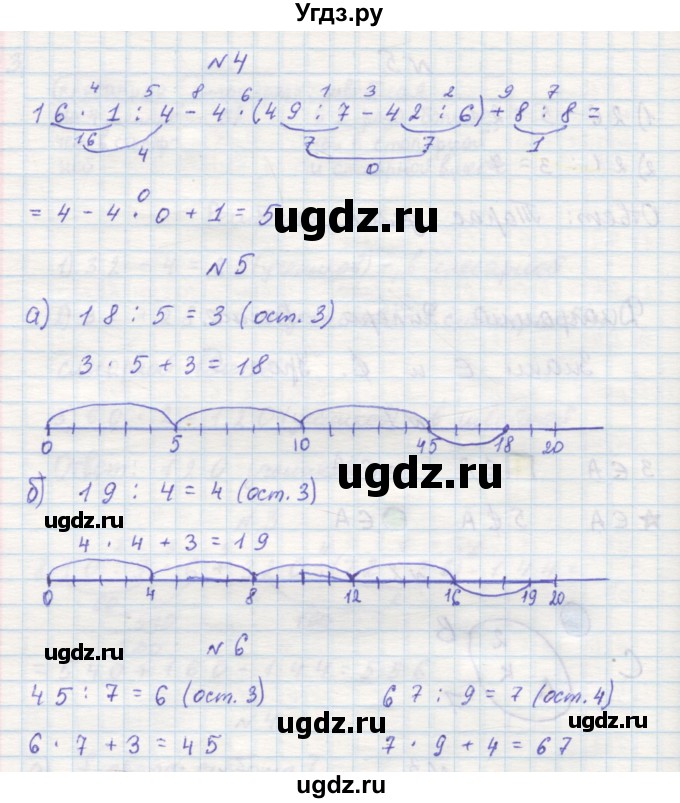 Угдз.ру
N4
4 5 8 6 1 3 2 9 7
16 · 1 : 4 - 4 · (49 : 7 - 42 : 6) + 8 : 8 =
16 7 7 1
4 0
0
= 4 - 4 · 0 + 1 = 5
ugdz.ru
N5
ugdz.ru
а) 18 : 5 = 3 (ост. 3)
3 · 5 + 3 = 18
0 5 10 45 18 20
ugdz.ru
б) 19 : 4 = 4 (ост. 3)
ugdz.ru
4 · 4 + 3 = 19
0 4 8 12 16 19 20
N6
45 : 7 = 6 (ост. 3) 67 : 9 = 7 (ост. 4)
ugdz.ru
6 · 7 + 3 = 45 7 · 9 + 4 = 67
ugdz.ru
ugdz.ru